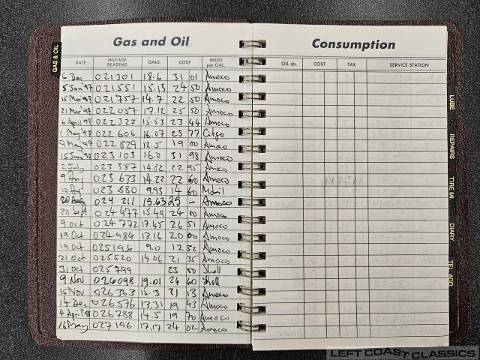 GAS & OIL
Gas and Oil
DATE MILEAGE READING GALS. COST MILES per GAL.
6 Dec 021301 18.6 31 01 Amoco
5 Jan 97 021551 15.13 24 50 Amoco
15 Mar 97 021757 14.7 22 50 Amoco
21 Mar 97 022057 17.12 25 50 Amoco
6 April 97 022322 15.53 23 44 Amoco
1 May 97 022606 16.07 23 77 Citgo
7 May 97 022829 12.5 19 00 Amoco
15 June 97 023103 16.0 31 98 Amoco
2 July 023387 14.52 22 95 Amoco
9 Aug 023673 14.22 22 60 Amoco
10 Aug 023880 9.93 14 60 Mobil
20 Aug 024211 19.63 29 - Amoco
20 Sept 024477 15.49 24 00 Amoco
9 Oct 024772 17.45 26 51 Amoco
19 Oct 024984 13.16 20 00 Amoco
19 Oct 025196 9.0 12 52 Amoco
21 Oct 025520 14.06 21 35 Amoco
31 Oct 025799 23 50 Shell
9 Nov 026098 19.01 24 60 Shell
15 Nov 026343 14.3 21 13 Amoco
14 Dec 026576 13.31 19 43 Amoco
4 April 98 026788 14.5 19 70 Amoco
16 May 027196 17.17 24 02 Amoco
Consumption
OIL qts. COST TAX SERVICE STATION
LUBE
REPAIRS
TIRE MI
DIARY
TEL. ADD
LEFT COAST CLASSICS